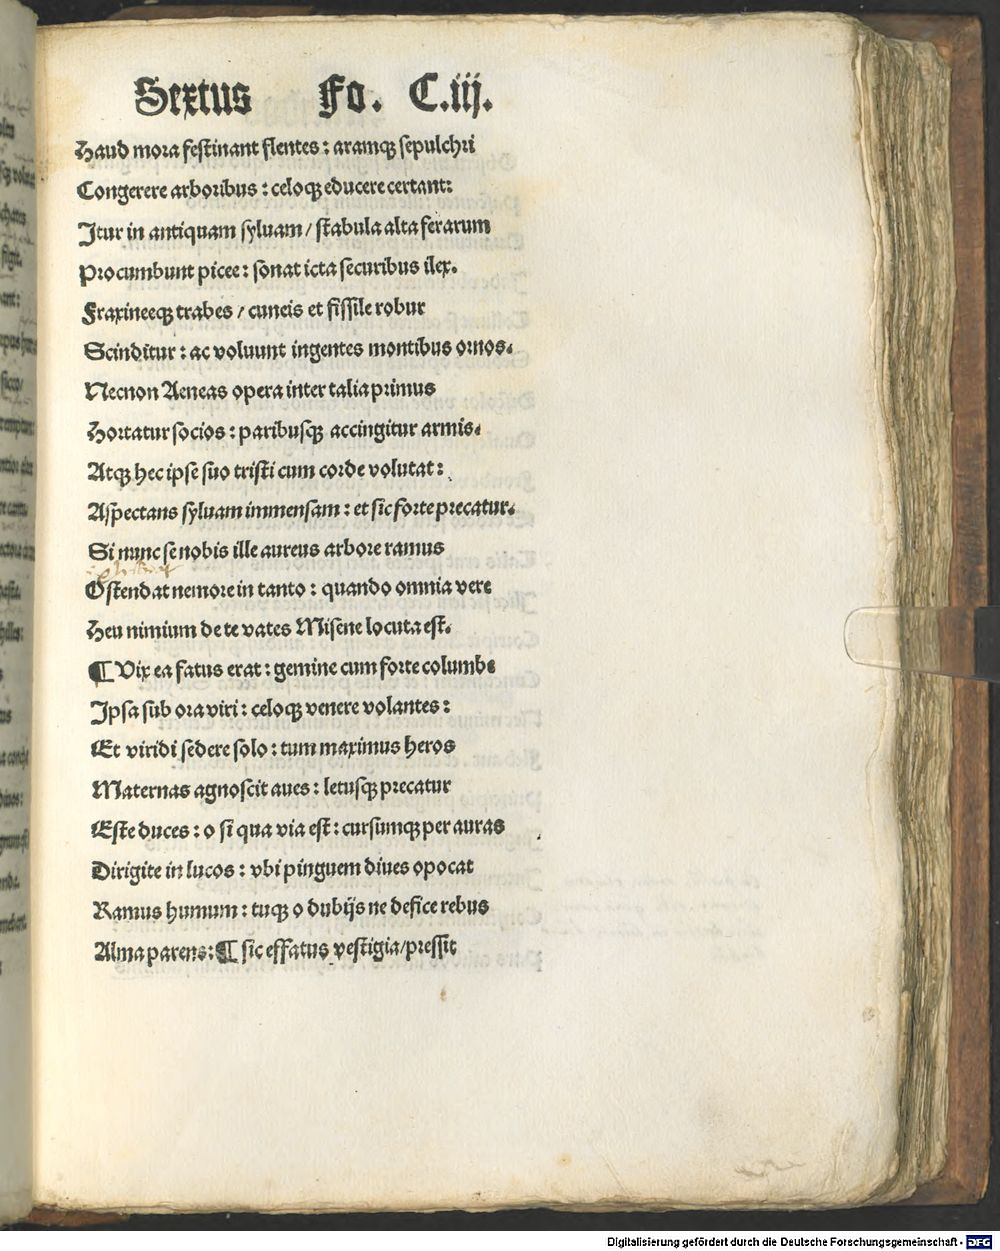 Sextus Fo. C.iij.
Haud mora festinant flentes : aramqꝫ sepulchri
Congerere arboribus : celoqꝫ educere certant:
Itur in antiquam syluam / stabula alta ferarum
Procumbunt picee : sonat icta securibus ilex.
Fraxineeqꝫ trabes / cuneis et fissile robur
Scinditur : ac voluunt ingentes montibus ornos.
Necnon Aeneas opera inter talia primus
Hortatur socios : paribusqꝫ accingitur armis.
Atqꝫ hec ipse suo tristi cum corde volutat :
Aspectans syluam immensam : et sic forte precatur.
Si nunc se nobis ille aureus arbore ramus
Ostendat nemore in tanto : quando omnia vere
Heu nimium de te vates Misene locuta est.
¶ Vix ea fatus erat : gemine cum forte columbe
Ipsa sub ora viri : celoqꝫ venere volantes :
Et viridi sedere solo : tum maximus heros
Maternas agnoscit aues : letusqꝫ precatur
Este duces : o si qua via est : cursumqꝫ per auras
Dirigite in lucos : vbi pinguem diues opocat
Ramus humum : tuqꝫ o dubijs ne defice rebus
Alma parens: ¶ sic effatus vestigia/pressit
Digitalisierung gefördert durch die Deutsche Forschungsgemeinschaft - DFG